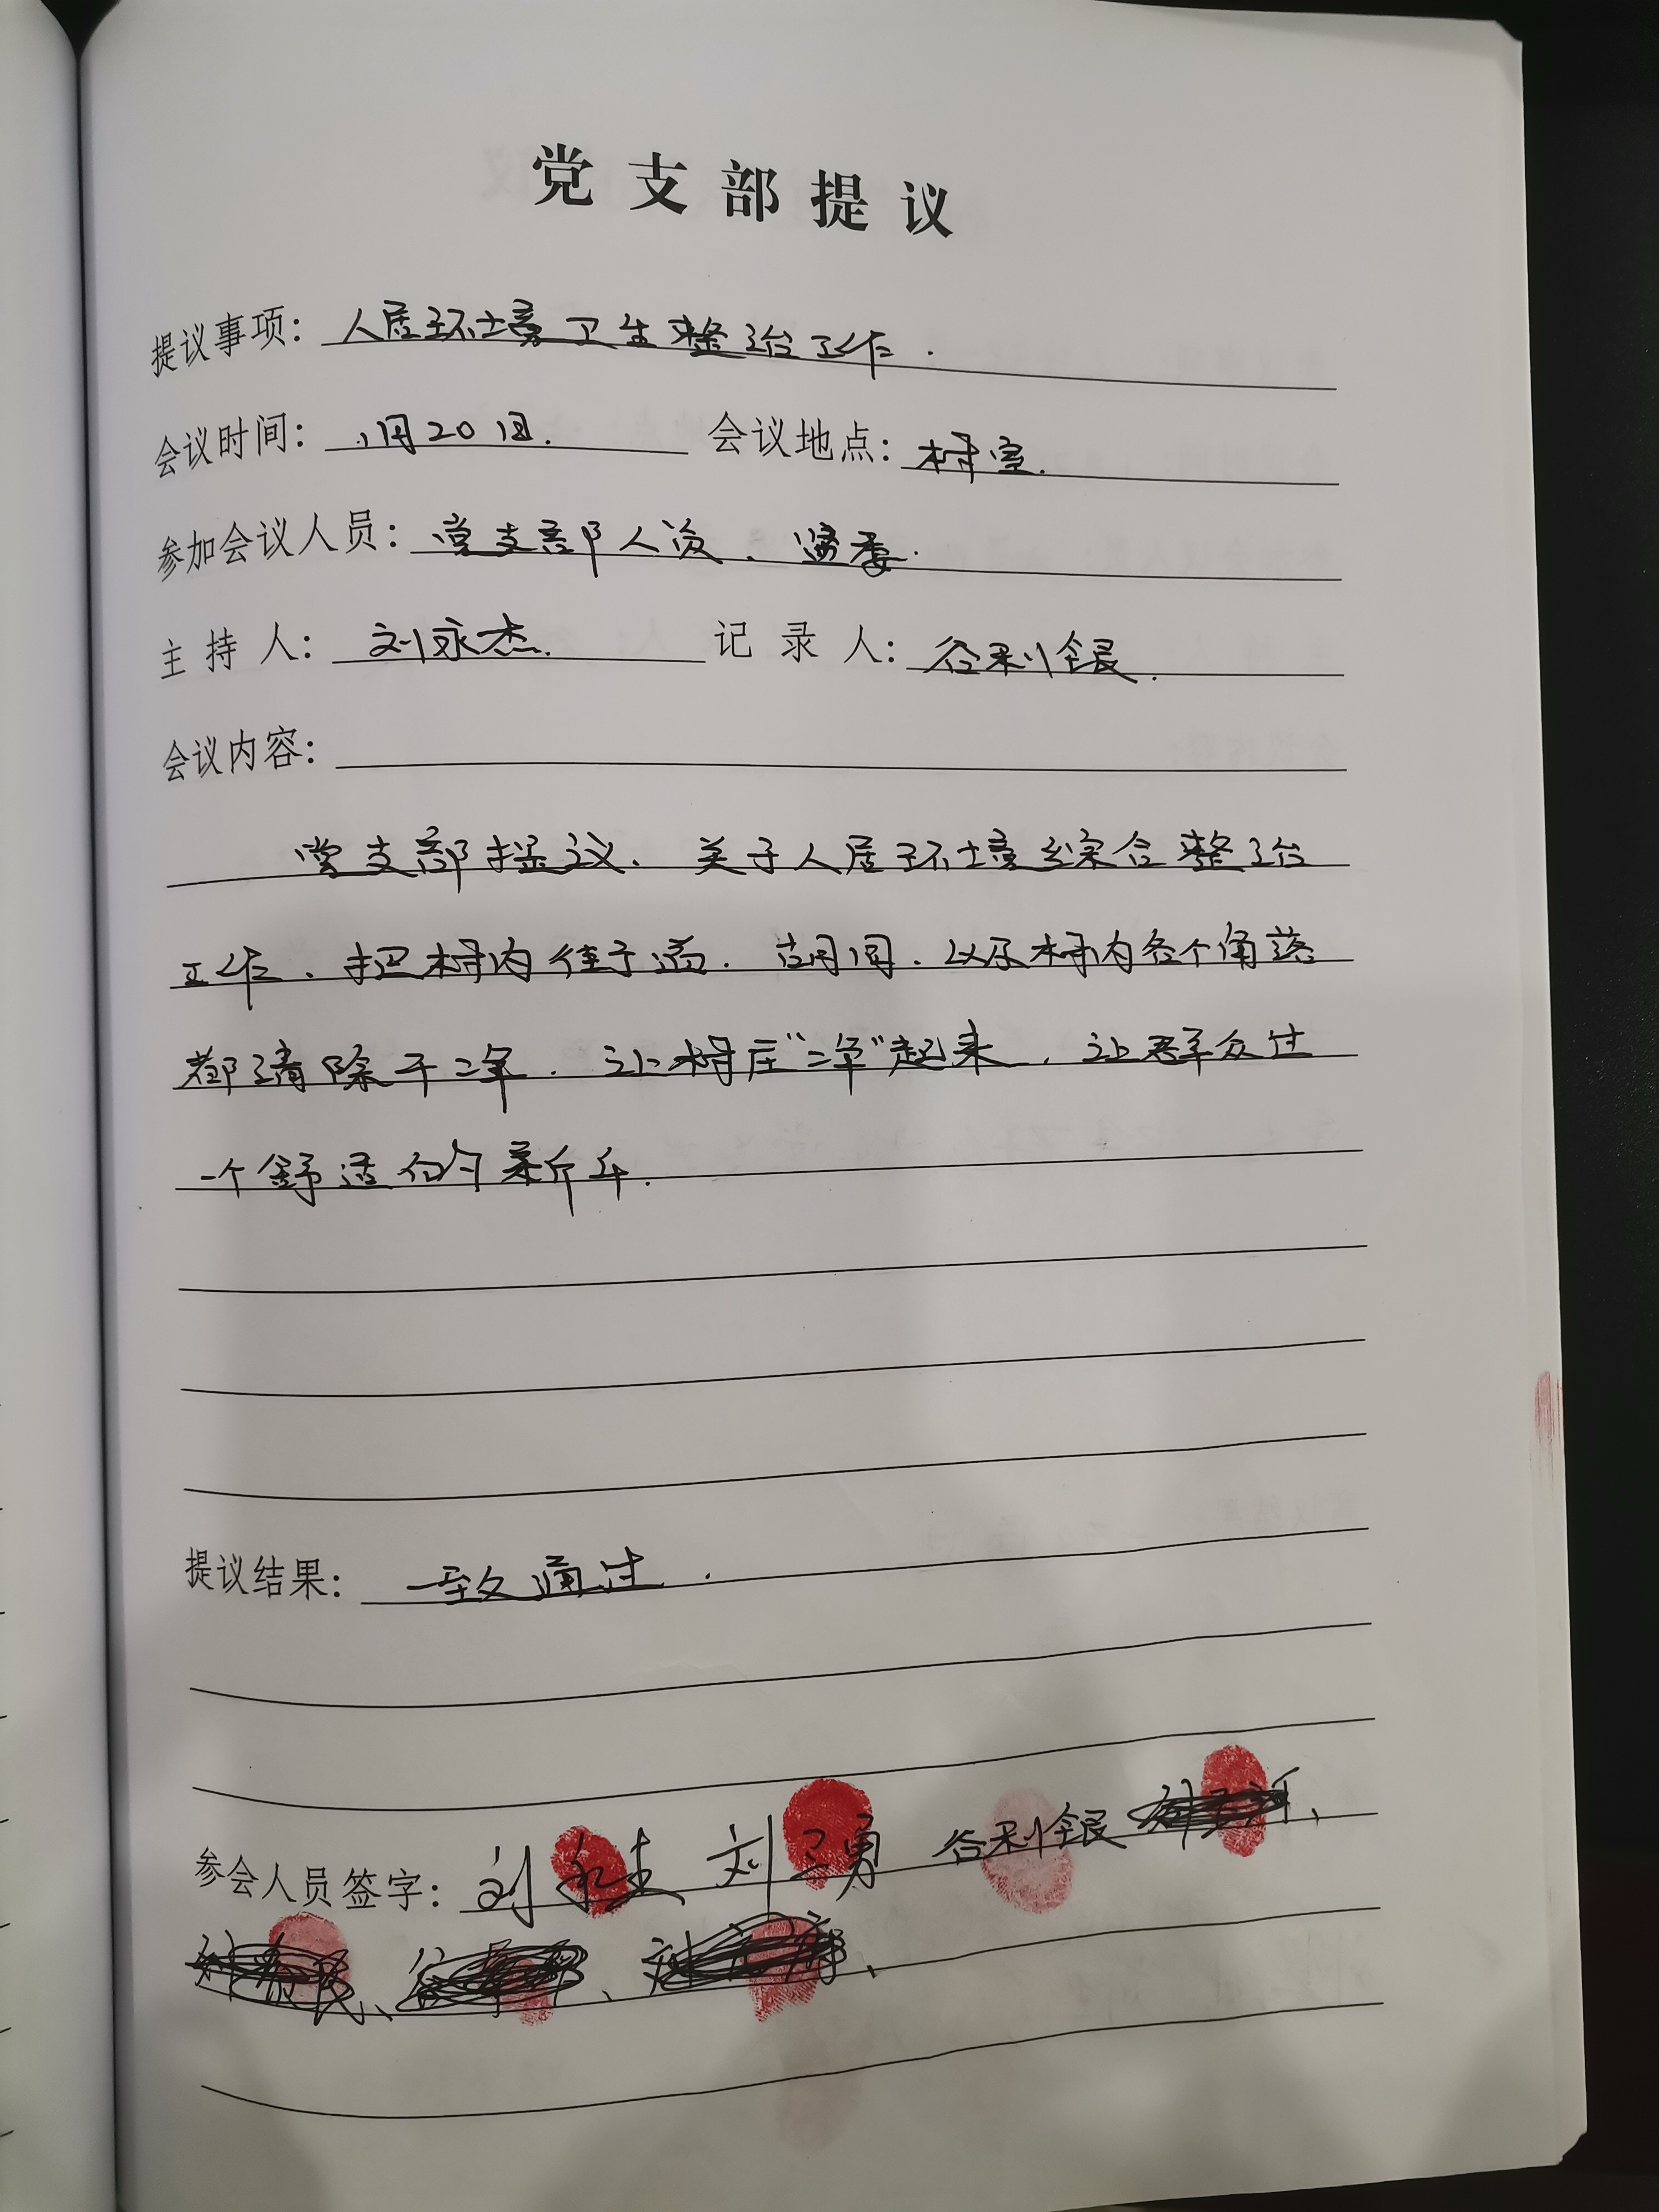 党支部提议
提议事项：人居环境卫生整治工作.
会议时间：1月20日. 会议地点：村室.
参加会议人员：党支部人员、监委.
主持人：刘永杰. 记录人：谷利银.
会议内容：
党支部提议、关于人居环境综合整治
工作、把村内街道.胡同、以及村内各个角落
都清除干净.让村庄"净"起来，让群众过
一个舒适的新年.
提议结果：一致通过.
参会人员签字：刘永杰 刘三勇 谷利银